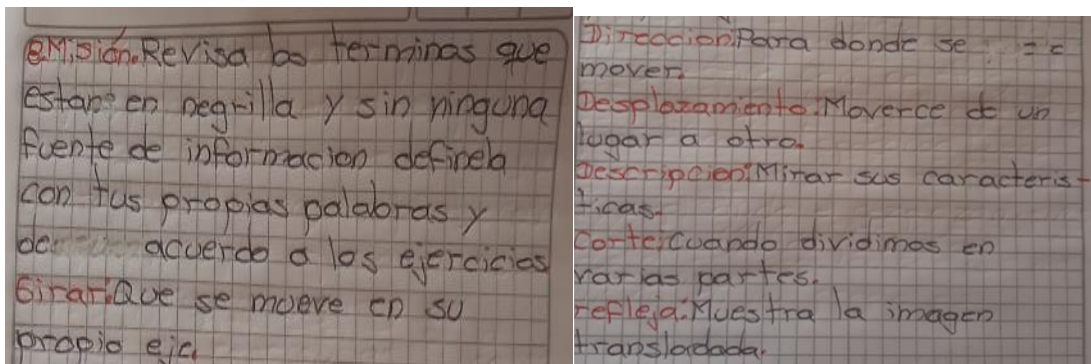 eMisión.Revisa los terminos que
estan en negrilla y sin ninguna
fuente de informacion definela
con tus propias palabras y
de acuerdo a los ejercicios
Girar:Que se mueve en su
propio eje.
Dirección:Para donde se
mover.
Desplazamiento:Moverce de un
lugar a otro.
Descripcion:Mirar sus caracteris-
ticas.
Corte:Cuando dividimos en
varias partes.
refleja:Muestra la imagen
transladada.